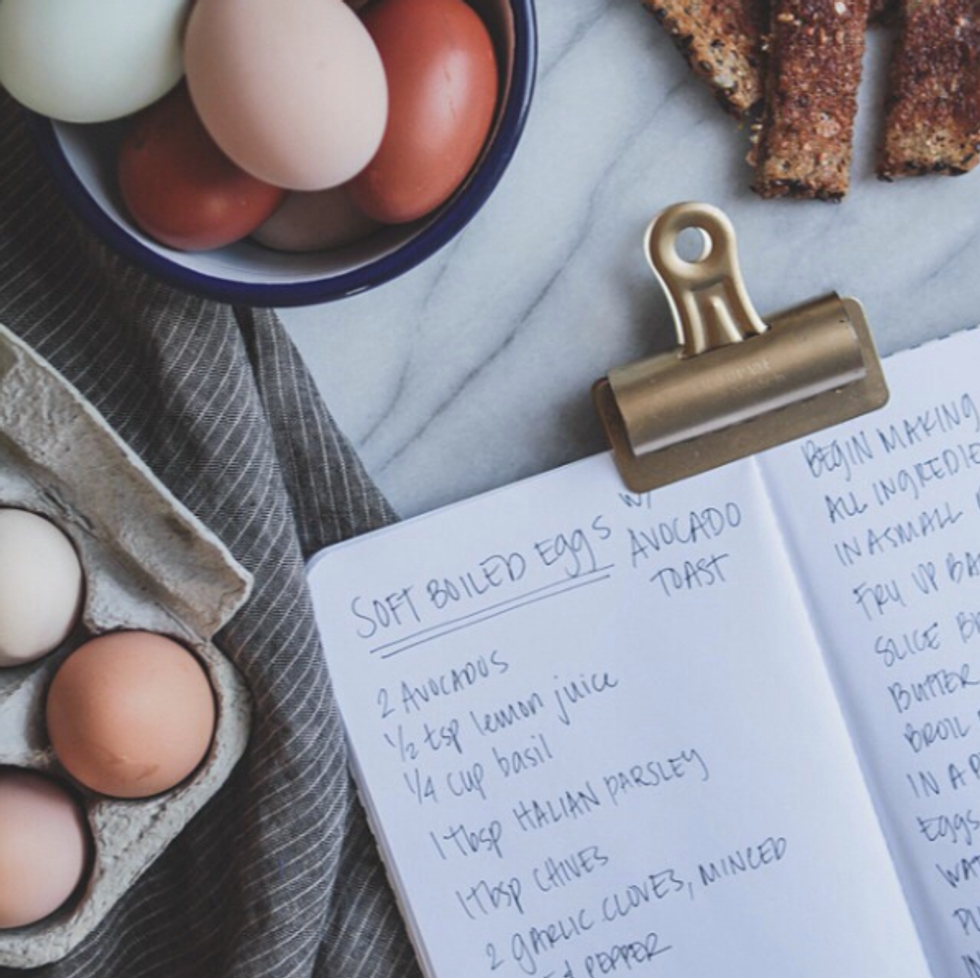 SOFT BOILED EGGS W/
AVOCADO
TOAST
2 AVOCADOS
1/2 tsp lemon juice
1/4 cup basil
1 Tbsp ITALIAN PARSLEY
1 Tbsp CHIVES
2 GARLIC CLOVES, MINCED
PEPPER
BEGIN MAKING
ALL
IN A SMALL
FRY UP
SLICE
BUTTER
BROIL
IN A
EGGS